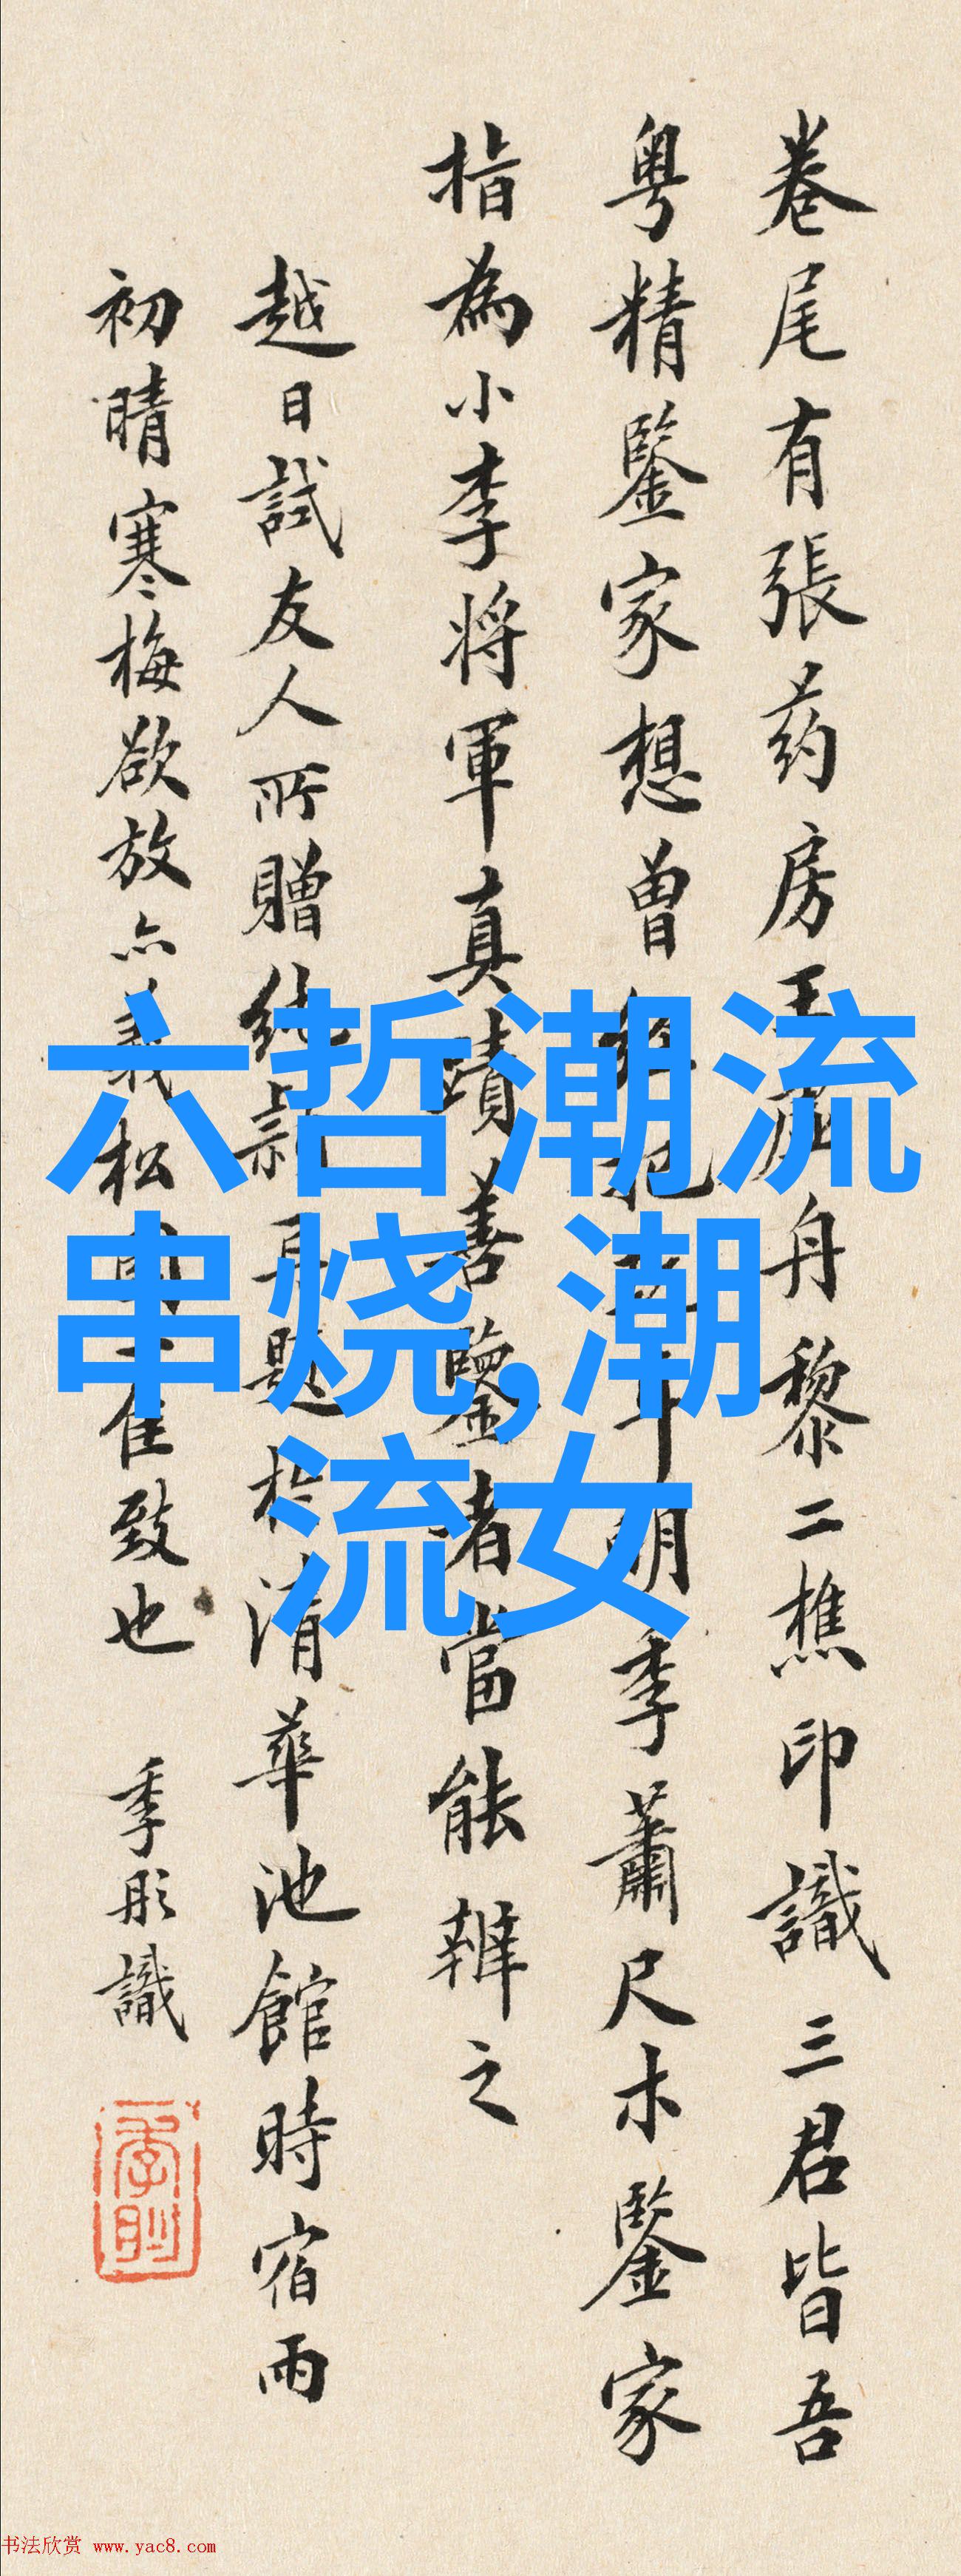 卷尾有張药房王舟黎二樵印識三君皆吾
粵精鑒家想曾季蕭尺木鑒家
指為小李將軍真蹟善鑒者當能辨之
越日試友人所贈純再題於清華池館時宿雨
初晴寒梅欲放亦松致也 季彤識
六哲潮流
串烧,潮
流女
书法欣赏 www.yac8.com